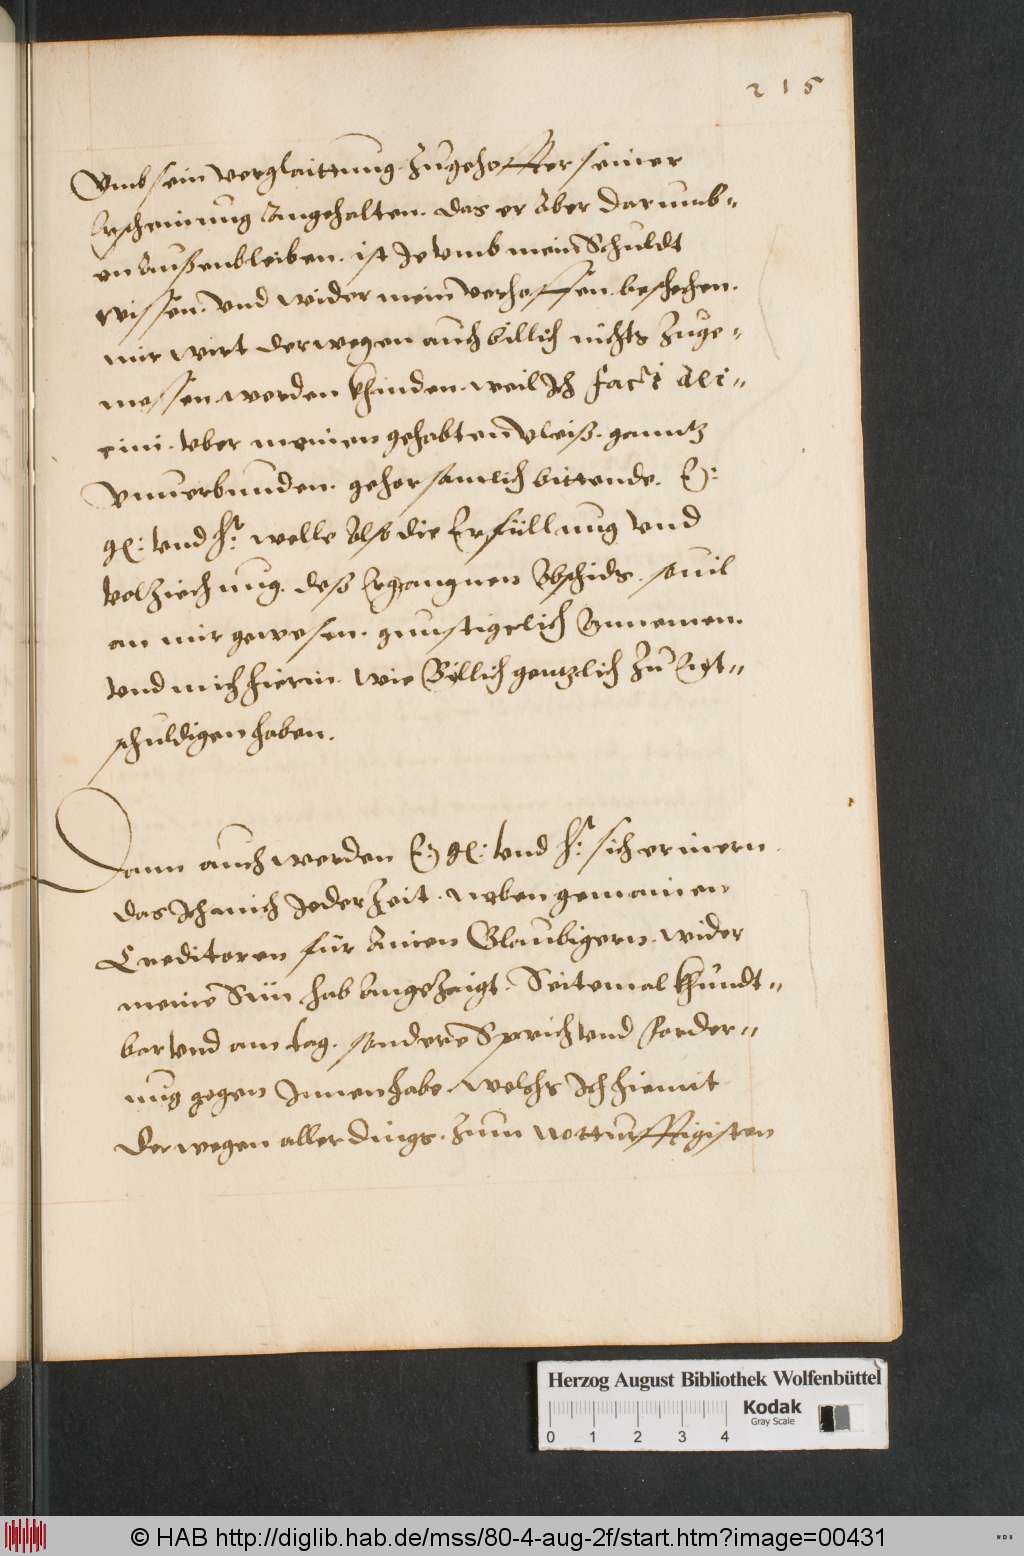 215
Vmb sein verglaittung. Zugehoffter seiner
Erscheinung Angehalten. das er Aber darumb-
en Außenbleiben. ist Je Vmb mein Schuldt
wissen. vnd wider mein verhoffen. beschehen.
mir wirt derwegen auch billich nichts Zuge-
messen werden khinden. weil Ich facti Ali-
eini. vber meinen gehabten Vleiß. ganntz
Vnuerbunden. gehorsamlich bittende. E:
gl: Vnd hr: welle Also die Erfüllnung Vnd
Volziechnung. deß Ergangnen Abschids. souil
an mir gewesen. gunstigelich Annemen.
Vnd mich hierin. wie Billich gentzlich Zu Ent-
schuldigen haben.
Dann auch werden E: gl: Vnd hr: sich erinern.
das Ich mich Jeder Zeit. neben gemainen
Creditoren für Ainen Glaubigern. wider
meine Sün. hab Angezaigt. Seitemal khundt-
bar Vnd am tag. sondere Sprich Vnd forder-
nug gegen Innen habe. welchs Ich hiemit
derwegen aller dings. Zum notturfftigisten
Herzog August Bibliothek Wolfenbüttel
Kodak
Gray Scale
0 1 2 3 4
© HAB http://diglib.hab.de/mss/80-4-aug-2f/start.htm?image=00431